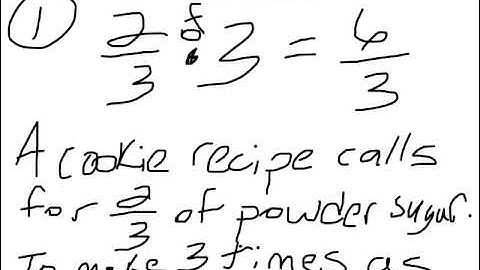 1 2/3 of • 3 = 6/3
A cookie recipe calls
for 2/3 of powder sugar.
To make 3 times as